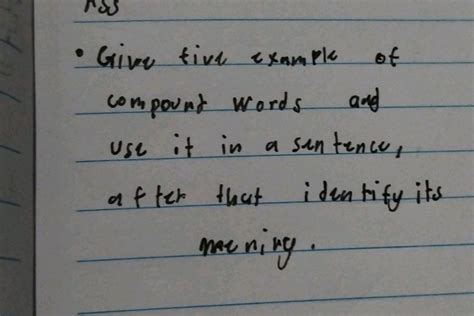 Ass
• Give five example of
compound words and
use it in a sentence,
after that identify its
mening.